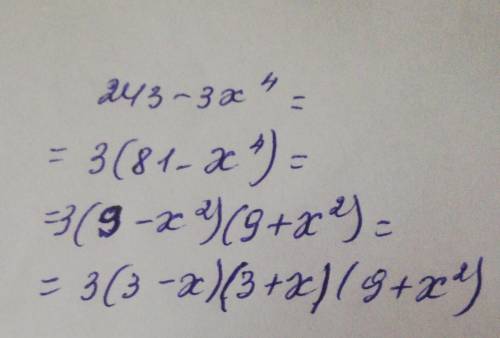 243 - 3x⁴ =
= 3(81 - x⁴) =
=3(9 - x²)(9 + x²) =
= 3(3 - x)(3 + x)(9 + x²)